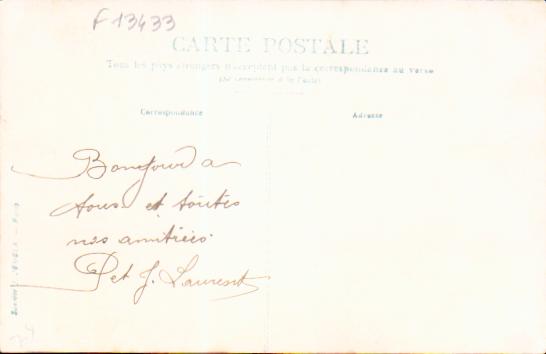 F 13433
CARTE POSTALE
Tous les pays étrangers n'acceptent pas la correspondance au verso
(Se renseigner à la Poste)
Correspondance
Adresse
Bonjour a
tous et toutes
nos amitiés
P et J. Laurent